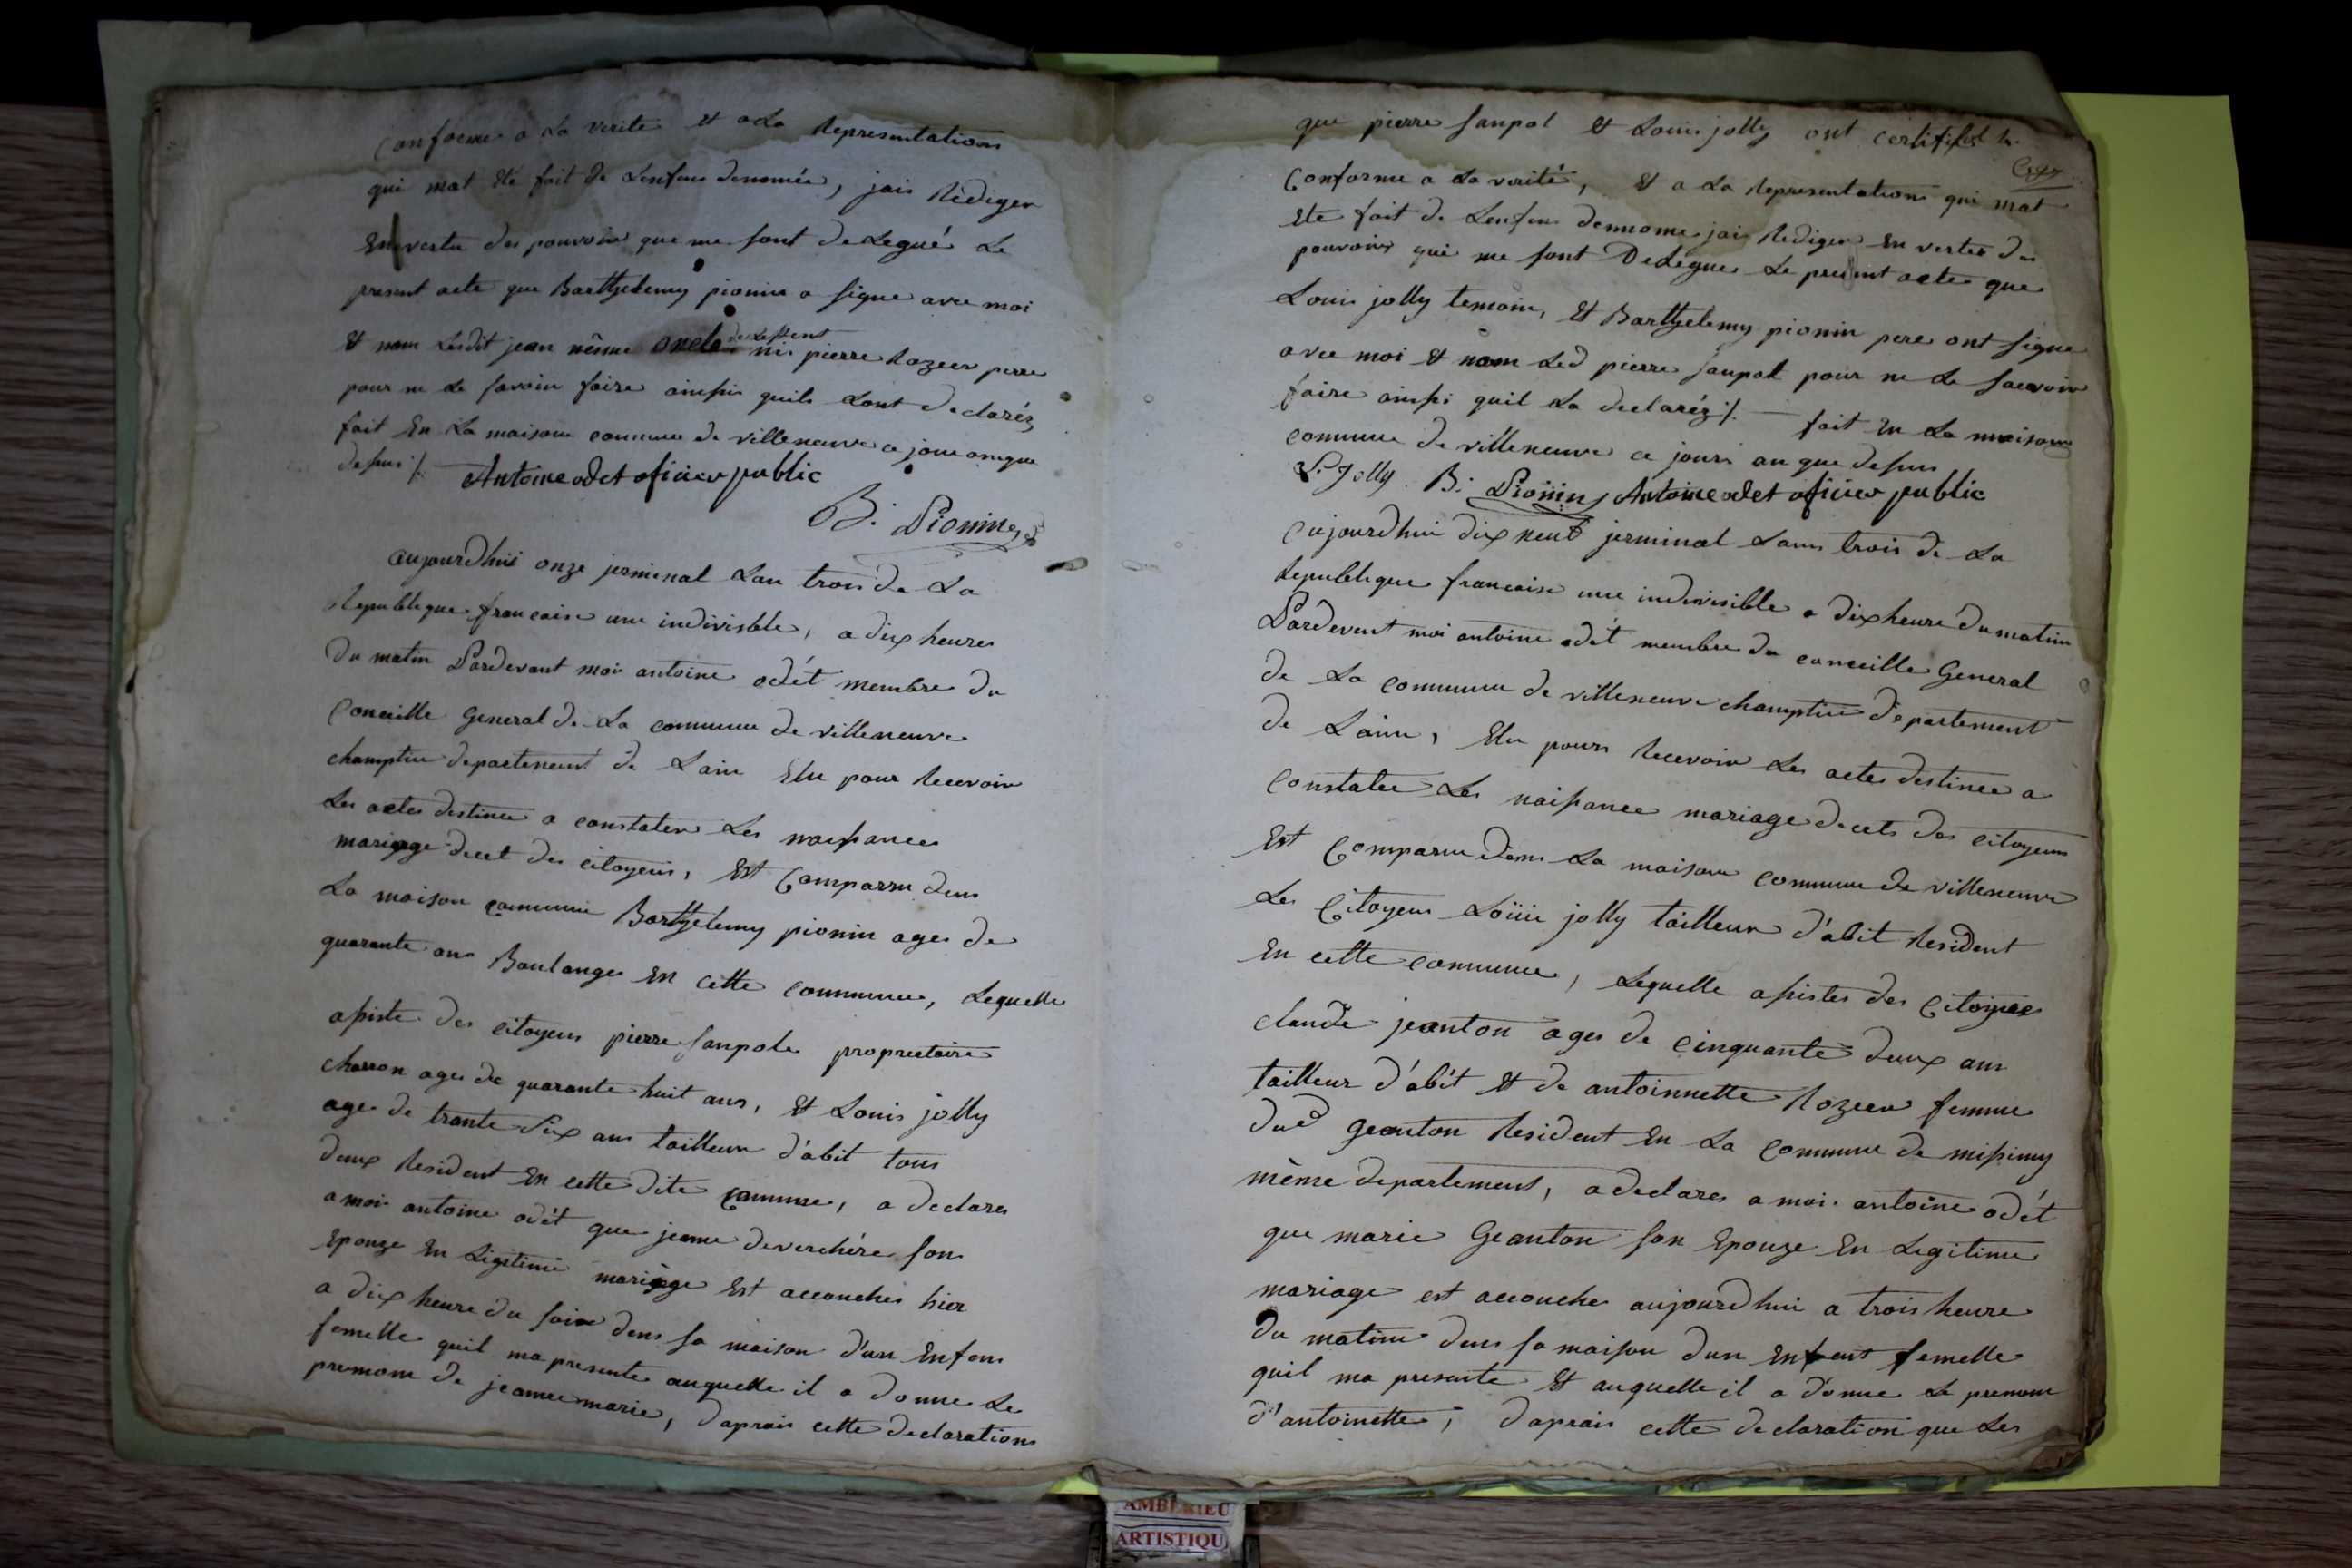 conforme a La verite et a La Representations
qui mat été fait de Lenfans denomée, jais Rédiger
En vertu des pouvoir que me sont delegué Le
present acte que Barthelemy pionin a signe avec moi
et nom Lesdit jean même oncle de Lesfent ni pierre Rozier perre
pour ne Le savoir faire ainssi quils Lont declaréz
fait En La maison commune de villeneuve ce jour anque
desus ·/.
Antoine odet oficier public
B. Pionin
aujourdhui onze jerminal Lan trois de La
Republique francaise une indivisible, a dix heures
du matin Pardevant moi antoine odét membre du
Conceille General de La commune de villeneuve
champtin departement de Lain Elu pour Recevoir
Les actes destinee a constater Les naissances
mariage decet des citoyens, Est Comparru dens
La maison commune Barthelemy pionin ages de
quarante ans Boulange En cette commune, Lequelle
assiste des citoyens pierre sanpole proprietaire
charron ages de quarante huit ans, et Louis jolly
age de trante six ans tailleur d'abit tous
deux Resident En cette dite commune, a declares
a moi antoine odét que jeanne deverchére son
Epouze En Ligitime mariage Est accouches hier
a dix heure du soir dens sa maison d'un Enfens
femelle quil ma presente auquelle il a donne Le
premom de jeanne marie, daprais cette declarations
que pierre sanpol et Louis jolly ont certifiest
Conforme a La verité, et a La Representations qui mat
Ete fait de Lenfens dennome jais Rediger En vertes des
pouvoirs qui me sont Delegue Le present acte que
Louis jolly temoin, et Barthelemy pionin pere ont signe
avec moi et nom Led pierre sanpol pour ne Le saavoir
faire ainssi quil La declaréz ·/. fait En La maison
commune de villeneuve ce jours an que desus
L. Jolly B. Pionin Antoine odet oficier public
aujourdhui dix neuf jerminal Lans trois de La
Republique francaise une indivisible a dix heure du matin
Pardevent moi antoine odét membre du conceille General
de La commune de villeneuve champtin departement
de Lainn, Elu pours Recevoir Les actes destinee a
constatee Les naissance mariage decets des citoyens
Est Comparu dens La maison commune de villeneuve
Les Citoyens Loüis jolly tailleur d'abit Resident
En cette commune, Lequelle assistes des Citoyees
claude jeanton ages de cinquante deux ans
tailleur d'abit et de antoinnette Rozeer femme
dud geanton Resident En La Commune de missimy
même departement, a declares a moi antoine odét
que marie Geanton son Epouze En Legitime
mariage est accouche aujourdhui a trois heure
du matin dens sa maison dun Enfent femelle
quil ma presente et auquelle il a donne Le premom
d'antoinette, daprais cette declaration que Les
AMBERIEU
ARTISTIQU